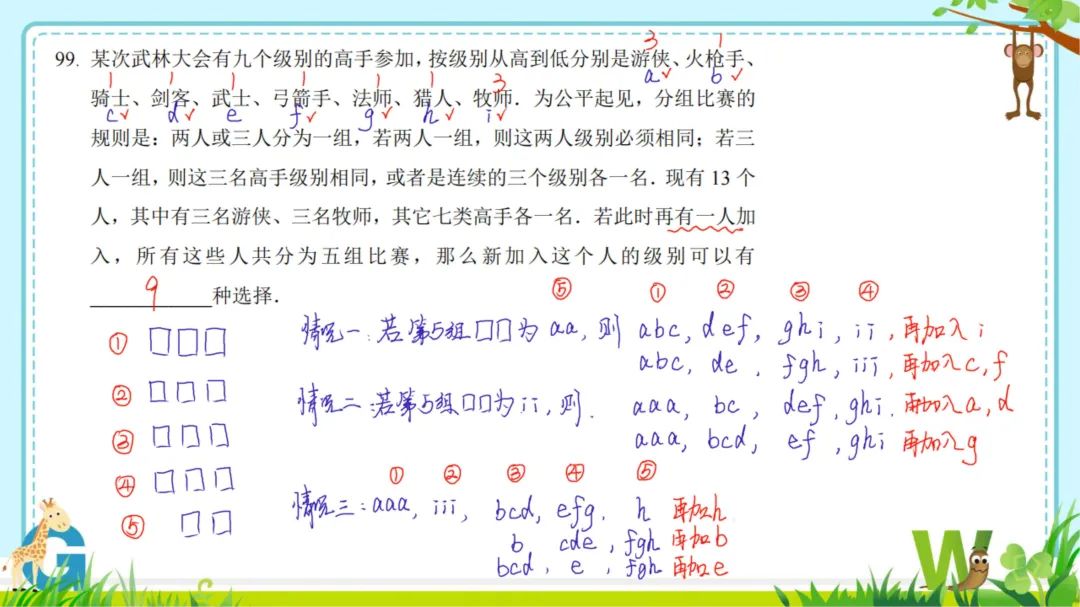 99. 某次武林大会有九个级别的高手参加，按级别从高到低分别是游侠、火枪手、
3 1
a✓ b✓
1 1 1 1 1 1 3
骑士、剑客、武士、弓箭手、法师、猎人、牧师．为公平起见，分组比赛的
c✓ d✓ e f✓ g✓ h✓ i✓
规则是：两人或三人分为一组，若两人一组，则这两人级别必须相同；若三
人一组，则这三名高手级别相同，或者是连续的三个级别各一名．现有 13 个
人，其中有三名游侠、三名牧师，其它七类高手各一名．若此时再有一人加
入，所有这些人共分为五组比赛，那么新加入这个人的级别可以有
9 种选择．
⑤ ① ② ③ ④
① □□□
② □□□
③ □□□
④ □□□
⑤ □□
情况一：若第5组□□为 aa，则 abc, def, ghi, ii, 再加入 i
abc, de , fgh, iii, 再加入c, f
情况二：若第5组□□为 ii, 则. aaa, bc , def, ghi. 再加入a, d
aaa, bcd, ef , ghi 再加入g
① ② ③ ④ ⑤
情况三：aaa, iii, bcd, efg. h 再加h
b cde , fgh 再加b
bcd , e , fgh 再加e
G
W